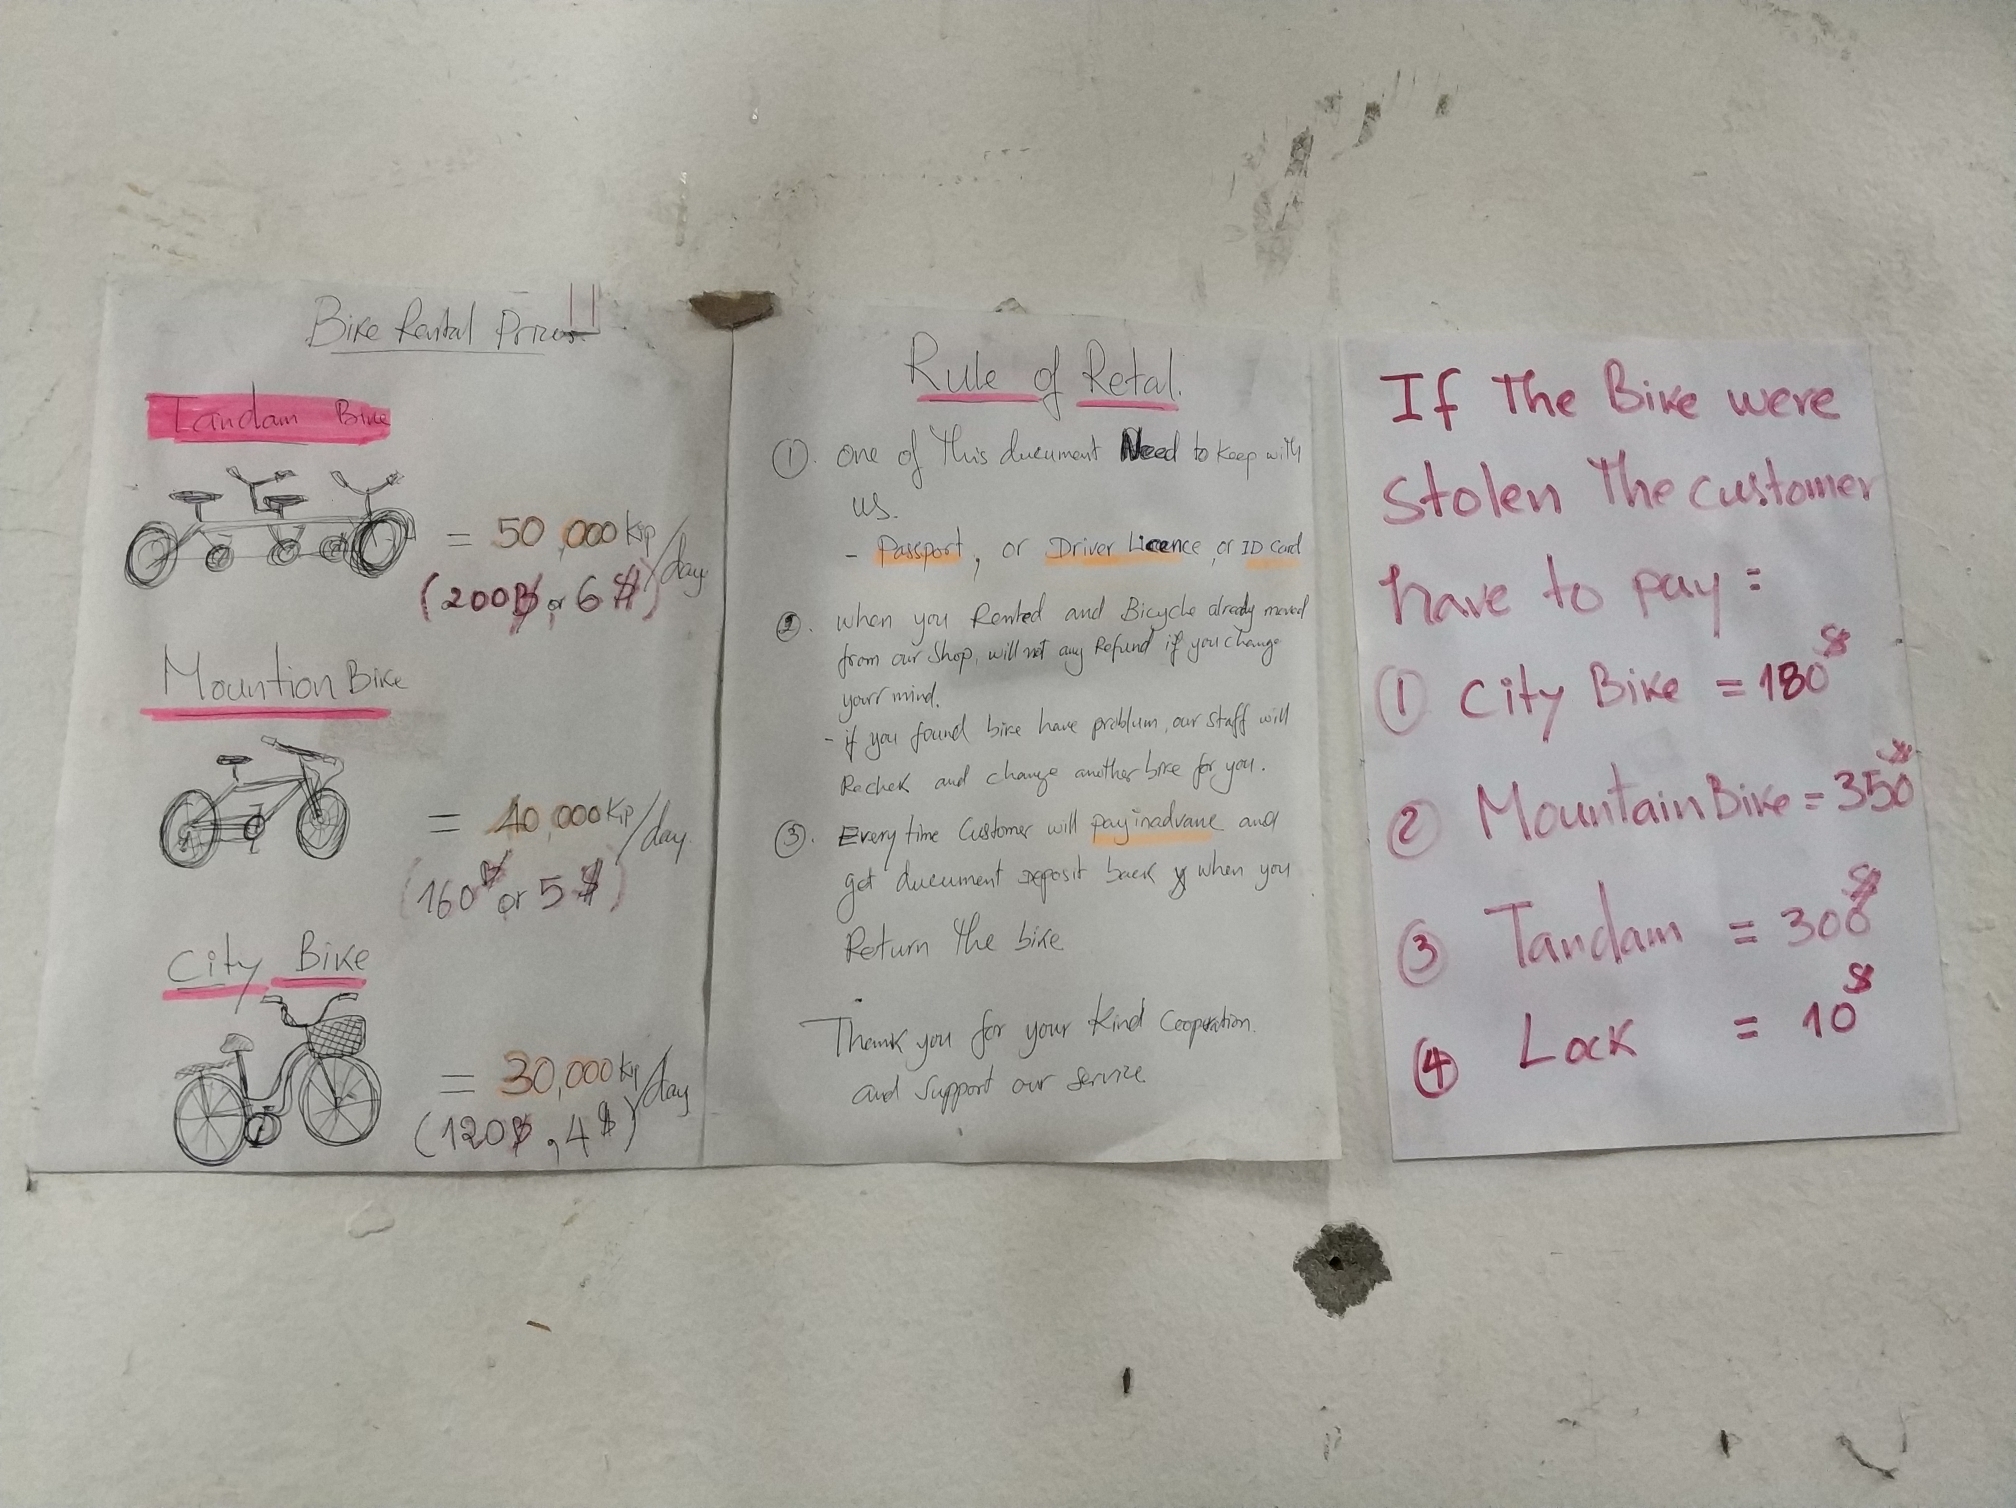 Bike Rental Prices
Tandam Bike
= 50,000 kip/day
(200฿ or 6$)
Mountion Bike
= 40,000 Kip/day
(160฿ or 5$)
City Bike
= 30,000 kip/day
(120฿, 4$)
Rule of Retal.
①. one of This ducument Need to keep with
us.
- Passport, or Driver Licence, or ID card
②. when you Rented and Bicycle already moved
from our Shop, will not any Refund if you change
your mind.
- if you found bike have problum, our staff will
Rechek and change another bike for you.
③. Every time Customer will pay inadvane and
get ducument deposit back when you
Return The bike
Thank you for your Kind Cooperation.
and Support our service
If The Bike were
Stolen The customer
have to pay:
① City Bike = 180$
② Mountain Bike = 350$
③ Tandam = 300$
④ Lock = 10$